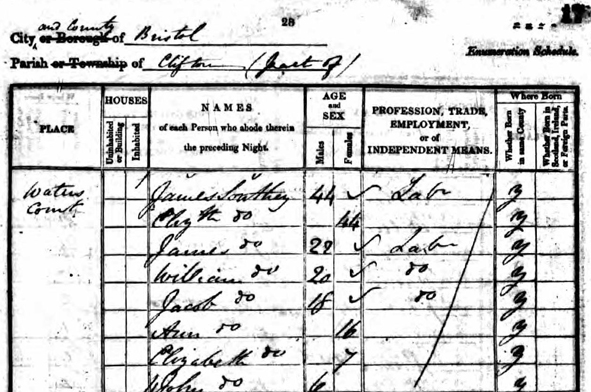 28
and County
City or Borough of Bristol
Enumeration Schedule.
Parish or Township of Clifton (part of)
PLACE
HOUSES
Uninhabited or Building
Inhabited
NAMES
of each Person who abode therein
the preceding Night.
AGE
and
SEX
Males
Females
PROFESSION, TRADE,
EMPLOYMENT,
or of
INDEPENDENT MEANS.
Where Born
Whether Born in same County
Whether Born in Scotland, Ireland, or Foreign Parts.
Waters 1 James Southey 44 Labr y
Court Elizth do 44 y
James do 22 Labr y
William do 20 do y
Jacob do 18 do y
Ann do 16 y
Elizabeth do 7 y
John do 6 y